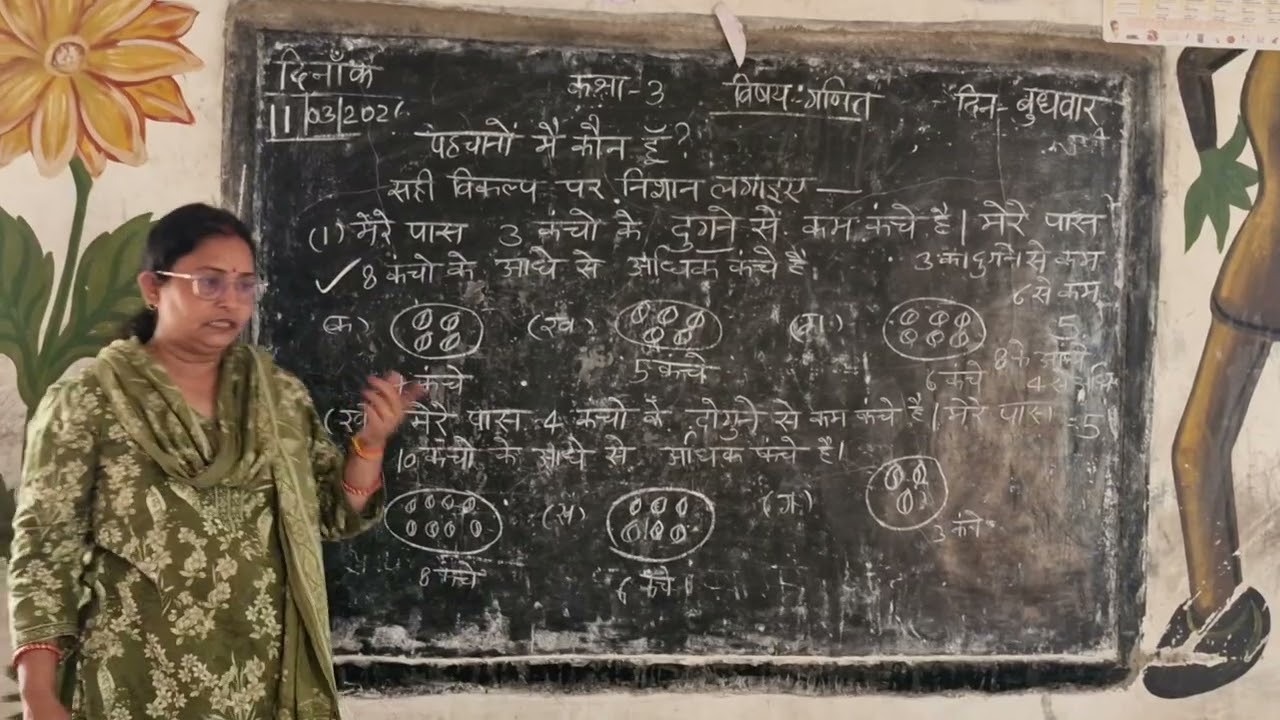 दिनाँक
11/03/2026
कक्षा-3
विषय:-गणित
दिन- बुधवार
पहचानों मैं कौन हूँ?
सही विकल्प पर निशान लगाइए —
(1) मेरे पास 3 कंचो के दुगने से कम कंचे है। मेरे पास
✓ 8 कंचो के आधे से अधिक कंचे है।
3 का दुगने से कम
6 से कम
5
8 के आधे
4 से
= 5
(क) (ख) (ग)
कंचे 5 कंचे 6 कंचे
(ख) मेरे पास 4 कंचो के दोगुने से कम कंचे है। मेरे पास
10 कंचो के आधे से अधिक कंचे है।
(ख) (ग)
8 कंचे 6 कंचे 3 कंचे